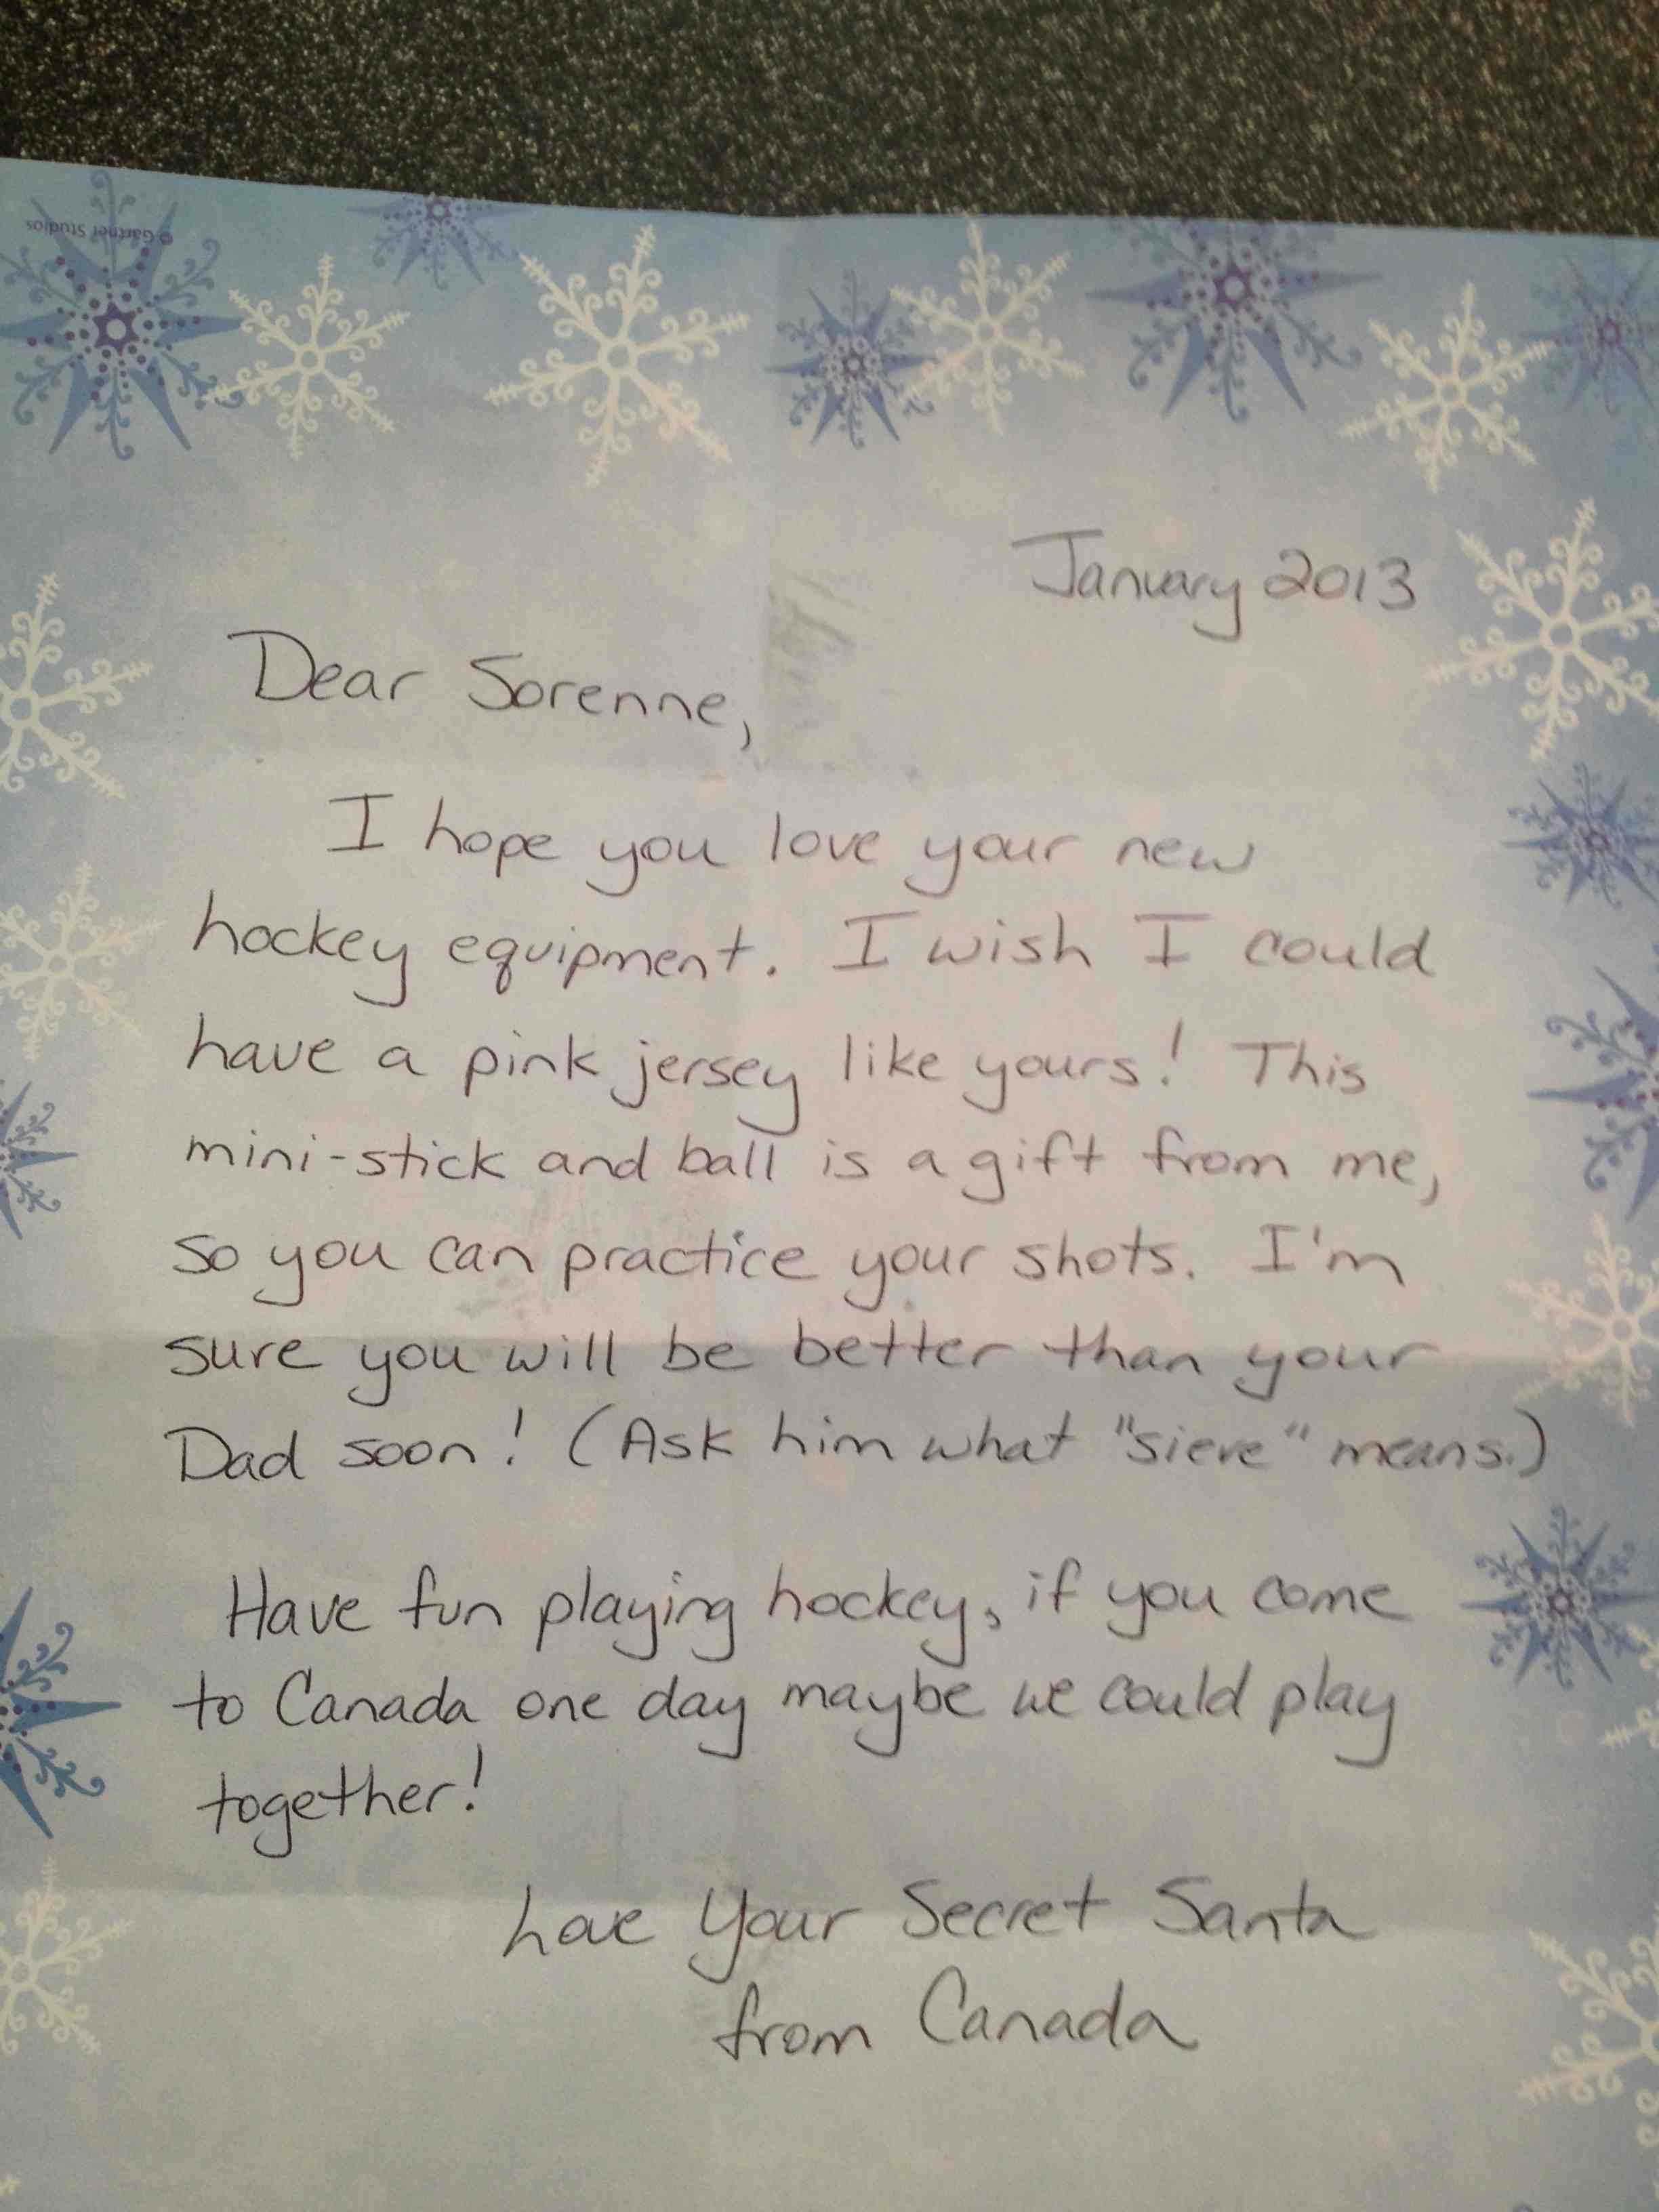 © Gartner Studios
January 2013
Dear Sorenne,
I hope you love your new
hockey equipment. I wish I could
have a pink jersey like yours! This
mini-stick and ball is a gift from me,
so you can practice your shots. I'm
sure you will be better than your
Dad soon! (Ask him what "sieve" means.)
Have fun playing hockey, if you come
to Canada one day maybe we could play
together!
Love Your Secret Santa
from Canada